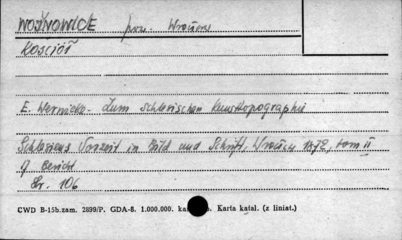 WOJNOWICE pow. Wrocław
KOŚCIÓŁ
E. Wernicke - Zum schlesischen Kunsttopographie
Schlesiens Vorzeit in Bild und Schrift, Wrocław 1872, tom II
9. Bericht
Str. 106
CWD B-15b.zam. 2899/P. GDA-8. 1.000.000. Karta katal. (z liniat.)